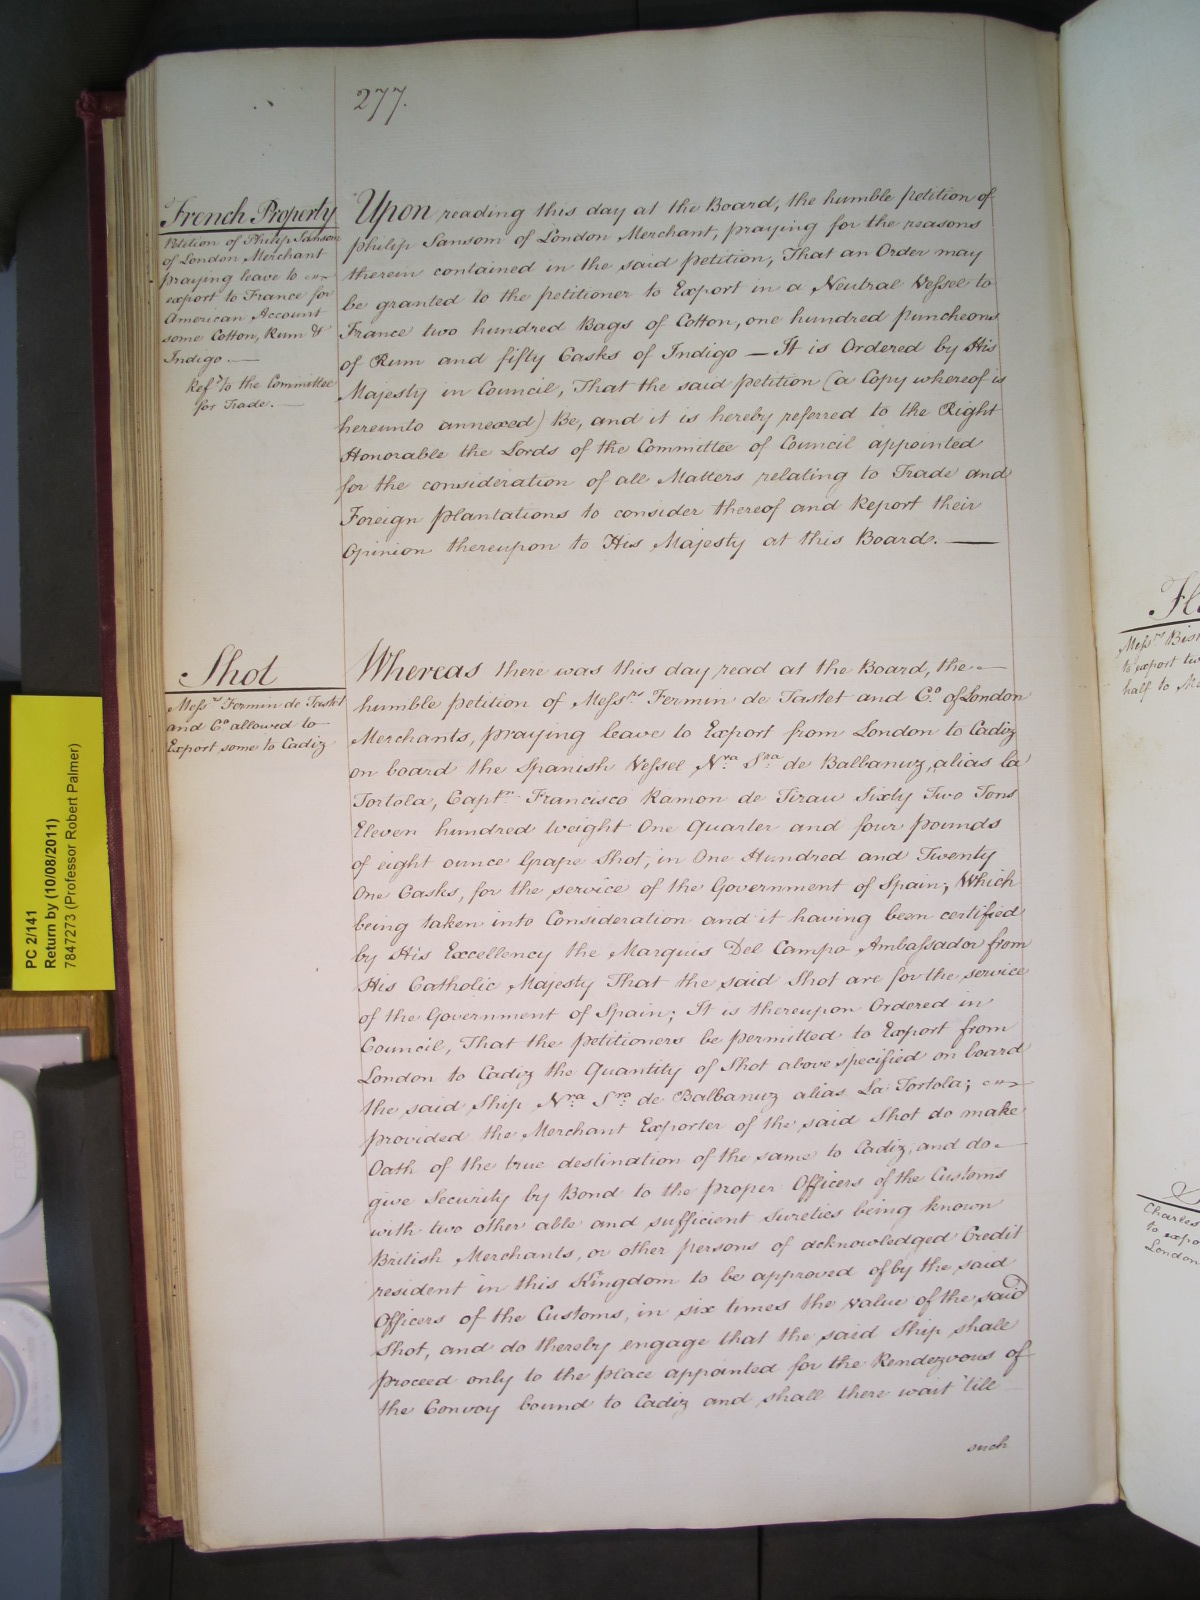 277.
French Property
Petition of Philip Sansom
of London Merchant
praying leave to
export to France for
American Account
some Cotton, Rum &
Indigo. —
Ref.d to the Committee
for Trade. —
Upon reading this day at the Board, the humble petition of
Philip Sansom of London Merchant, praying for the reasons
therein contained in the said petition, That an Order may
be granted to the petitioner to Export in a Neutral Vessel to
France two hundred Bags of Cotton, one hundred puncheons
of Rum and fifty Casks of Indigo — It is Ordered by His
Majesty in Council, That the said petition (a Copy whereof is
hereunto annexed) Be, and it is hereby referred to the Right
Honorable the Lords of the Committee of Council appointed
for the consideration of all Matters relating to Trade and
Foreign plantations to consider thereof and Report their
Opinion thereupon to His Majesty at this Board. —
Shot
Mess.rs Fermin de Tastet
and C.o allowed to
Export some to Cadiz
Whereas there was this day read at the Board, the
humble petition of Mess.rs Fermin de Tastet and C.o of London
Merchants, praying leave to Export from London to Cadiz
on board the Spanish Vessel N.ra S.ra de Balbanuz, alias La
Tortola, Capt.n Francisco Ramon de Tirau Sixty Two Tons
Eleven hundred weight One Quarter and four pounds
of eight ounce Grape Shot, in One Hundred and Twenty
One Casks, for the service of the Government of Spain; Which
being taken into Consideration and it having been certified
by His Excellency the Marquis Del Campo Ambassador from
His Catholic Majesty That the said Shot are for the service
of the Government of Spain; It is thereupon Ordered in
Council, That the petitioners be permitted to Export from
London to Cadiz the Quantity of Shot above specified on board
the said Ship N.ra S.ra de Balbanuz alias La Tortola;
provided the Merchant Exporter of the said Shot do make
Oath of the true destination of the same to Cadiz, and do
give Security by Bond to the proper Officers of the Customs
with two other able and sufficient Sureties being known
British Merchants, or other persons of acknowledged Credit
resident in this Kingdom to be approved of by the said
Officers of the Customs, in six times the value of the said
Shot, and do thereby engage that the said Ship shall
proceed only to the place appointed for the Rendezvous of
the Convoy bound to Cadiz and shall there wait 'till
such
PC 2/141
Return by (10/08/2011)
7847273 (Professor Robert Palmer)
Mess.rs
to export
half to
Charles
to
London